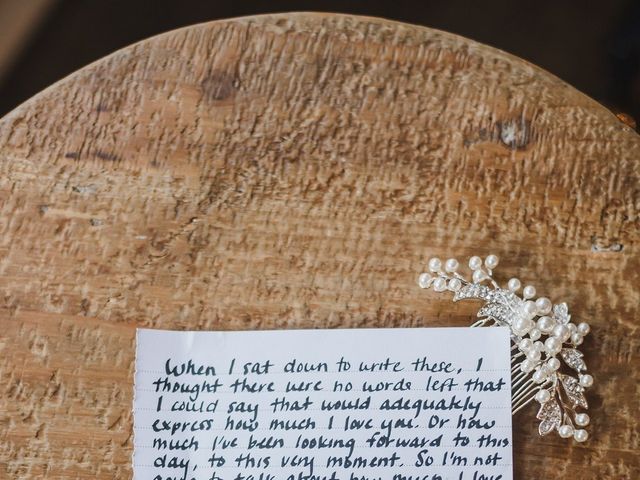 When I sat down to write these, I
thought there were no words left that
I could say that would adequately
express how much I love you. Or how
much I've been looking forward to this
day, to this very moment. So I'm not
going to talk about how much I love